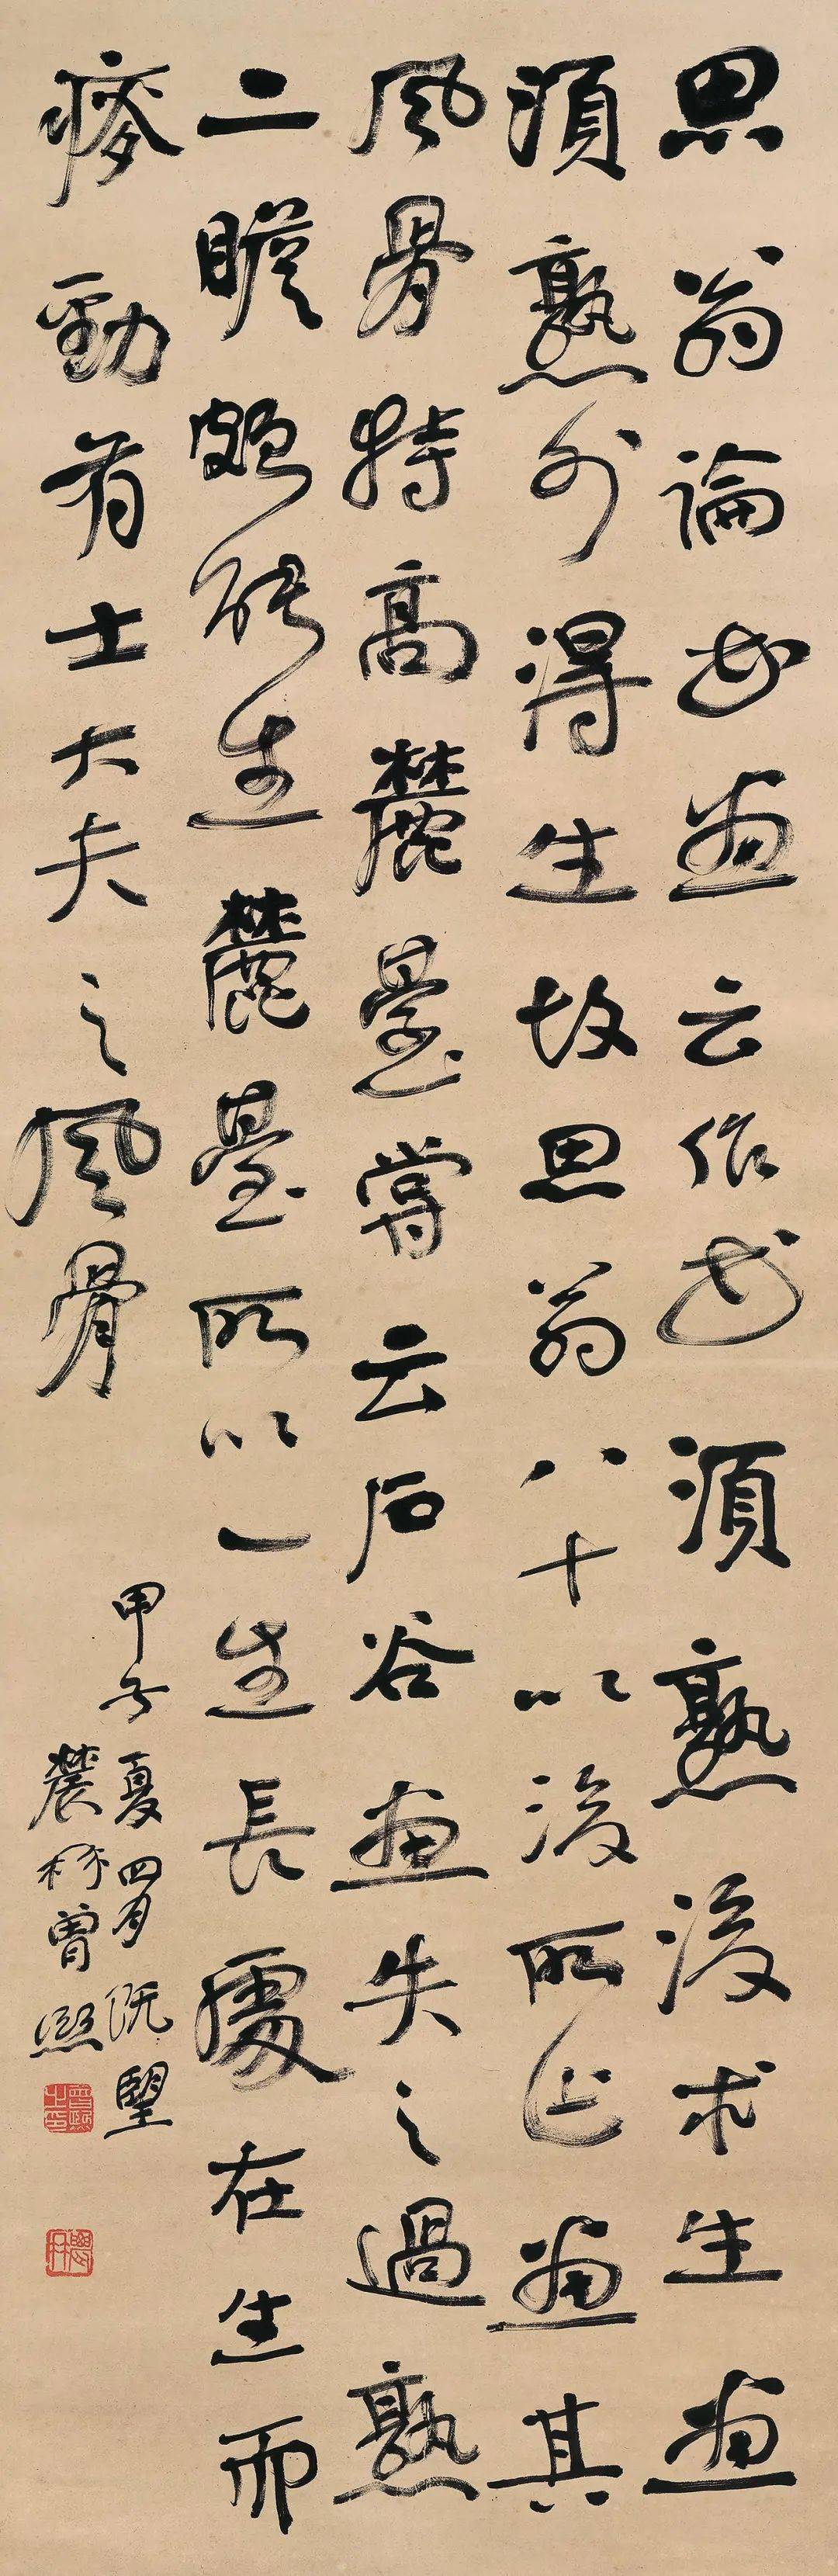 思翁論書畫云作書須熟後求生畫
須熟外得生故思翁八十以後所作畫其
風骨特高麓臺嘗云石谷畫失之過熟
二瞻頗能生麓臺所以一生長處在生而
瘦勁有士大夫之風骨
甲子夏四月既望
農髯曾熙
曾熙之印